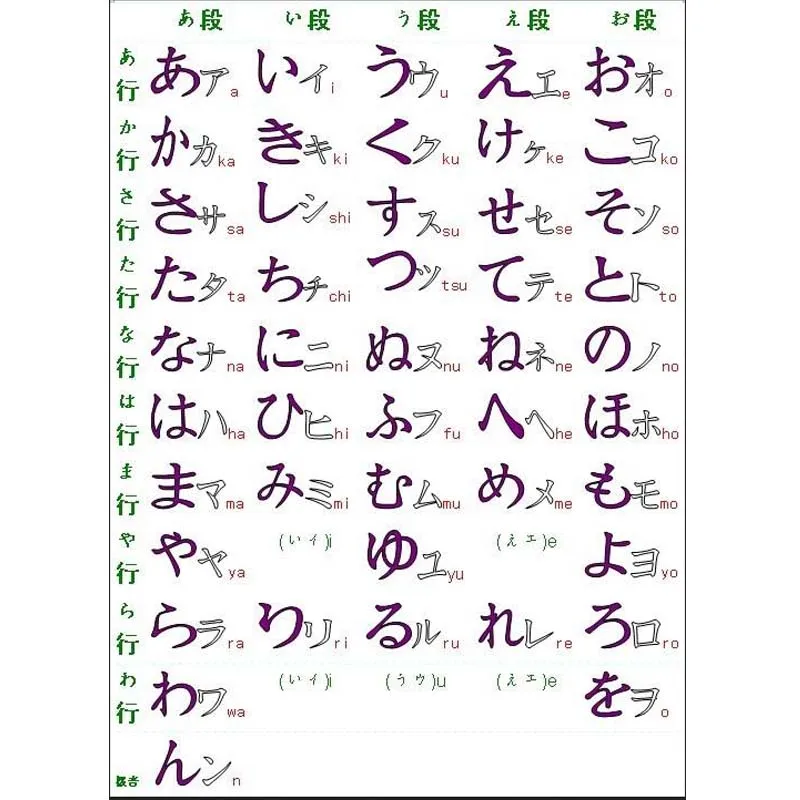 あ段 い段 う段 え段 お段
あ行 あアa いイi うウu えエe おオo
か行 かカka きキki くクku けケke こコko
さ行 さサsa しシshi すスsu せセse そソso
た行 たタta ちチchi つツtsu てテte とトto
な行 なナna にニni ぬヌnu ねネne のノno
は行 はハha ひヒhi ふフfu へヘhe ほホho
ま行 まマma みミmi むムmu めメme もモmo
や行 やヤya (いイ)i ゆユyu (えエ)e よヨyo
ら行 らラra りリri るルru れレre ろロro
わ行 わワwa (いイ)i (うウ)u (えエ)e をヲo
んンn